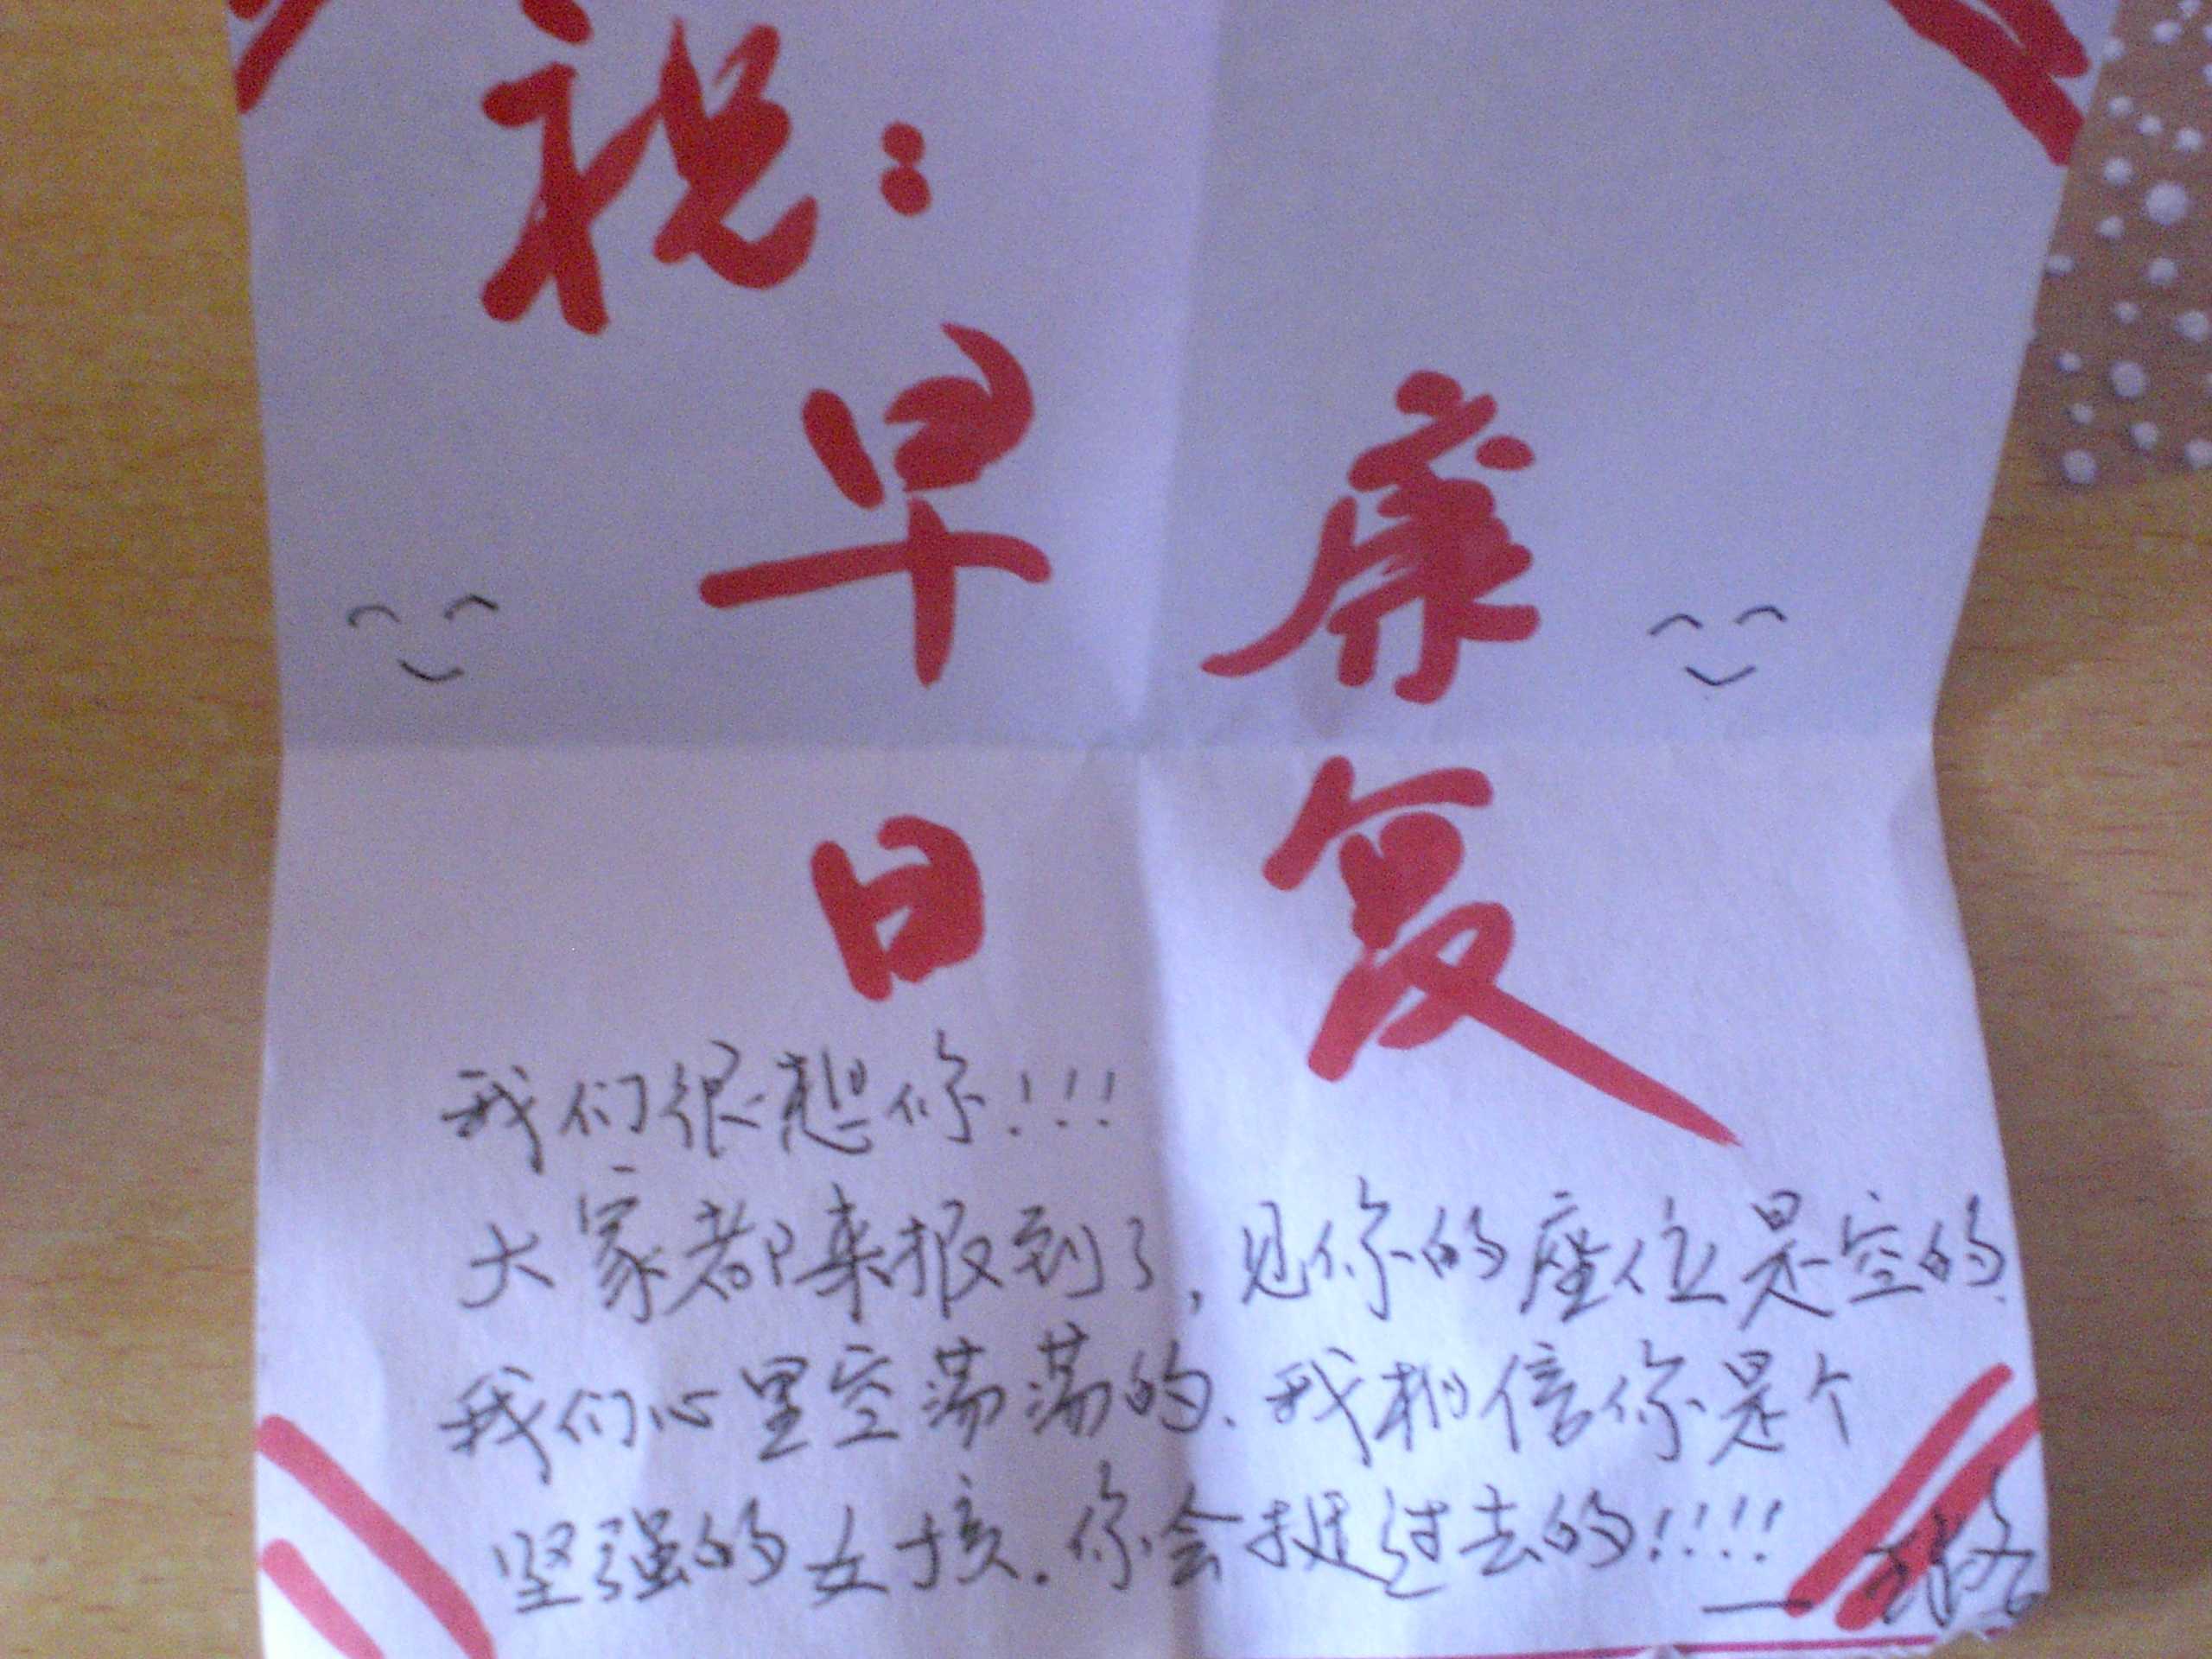 祝：
早日
康复
我们很想你！！！
大家都来报到了，见你的座位是空的.
我们心里空荡荡的.我相信你是个
坚强的女孩.你会挺过去的！！！！